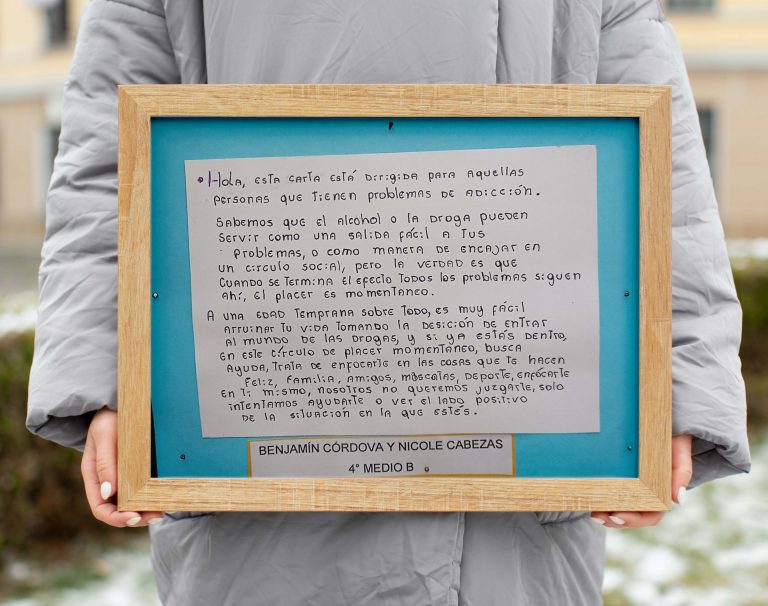 • Hola, esta carta está dirigida para aquellas
personas que tienen problemas de adicción.
Sabemos que el alcohol o la droga pueden
servir como una salida fácil a tus
problemas, o como manera de encajar en
un circulo social, pero la verdad es que
cuando se termina el efecto todos los problemas siguen
ahí, el placer es momentaneo.
A una edad temprana sobre todo, es muy fácil
arruinar tu vida tomando la desición de entrar
al mundo de las drogas, y si ya estás dentro,
en este círculo de placer momentáneo, busca
ayuda, trata de enfocarte en las cosas que te hacen
feliz, familia, amigos, mascotas, deporte, enfócarte
en ti mismo, nosotros no queremos juzgarte, solo
intentamos ayudarte o ver el lado positivo
de la situación en la que estés.
BENJAMÍN CÓRDOVA Y NICOLE CABEZAS
4° MEDIO B